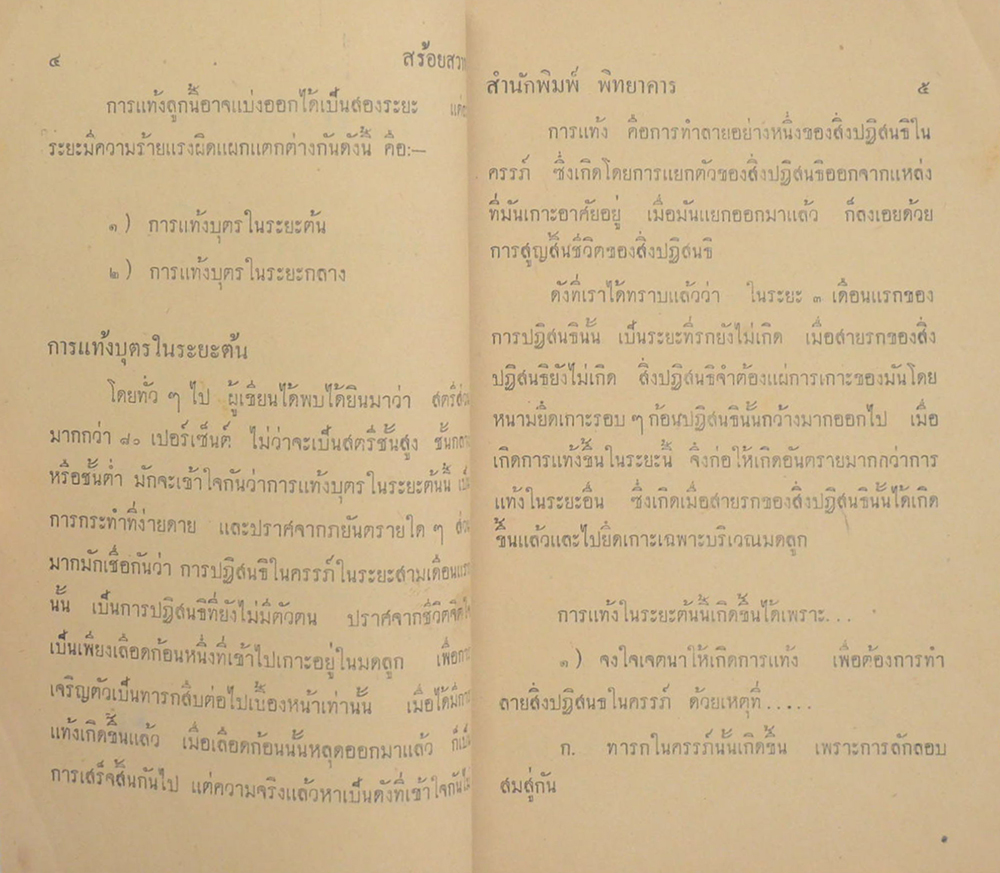 ๔ สร้อยสวาท
การแท้งลูกนี้อาจแบ่งออกได้เป็นสองระยะ
ระยะมีความร้ายแรงผิดแผกแตกต่างกันดังนี้ คือ:—
๑) การแท้งบุตรในระยะต้น
๒) การแท้งบุตรในระยะกลาง
การแท้งบุตรในระยะต้น
โดยทั่ว ๆ ไป ผู้เขียนได้พบได้ยินมาว่า สตรีส่วน
มากกว่า ๘๐ เปอร์เซ็นต์ ไม่ว่าจะเป็นสตรีชั้นสูง ชั้นกลาง
หรือชั้นต่ำ มักจะเข้าใจกันว่าการแท้งบุตรในระยะต้นนี้ เป็น
การกระทำที่ง่ายดาย และปราศจากภยันตรายใด ๆ ส่วน
มากมักเชื่อกันว่า การปฏิสนธิในครรภ์ในระยะสามเดือนแรก
นั้น เป็นการปฏิสนธิที่ยังไม่มีตัวตน ปราศจากชีวิตจิตใจ
เป็นเพียงเลือดก้อนหนึ่งที่เข้าไปเกาะอยู่ในมดลูก เพื่อการ
เจริญตัวเป็นทารกสืบต่อไปเบื้องหน้าเท่านั้น เมื่อได้มีการ
แท้งเกิดขึ้นแล้ว เมื่อเลือดก้อนนั้นหลุดออกมาแล้ว ก็เป็น
การเสร็จสิ้นกันไป แต่ความจริงแล้วหาเป็นดังที่เข้าใจกันไม่
สำนักพิมพ์ พิทยาคาร ๕
การแท้ง คือการทำลายอย่างหนึ่งของสิ่งปฏิสนธิใน
ครรภ์ ซึ่งเกิดโดยการแยกตัวของสิ่งปฏิสนธิออกจากแหล่ง
ที่มันเกาะอาศัยอยู่ เมื่อมันแยกออกมาแล้ว ก็ลงเอยด้วย
การสูญสิ้นชีวิตของสิ่งปฏิสนธิ
ดังที่เราได้ทราบแล้วว่า ในระยะ ๓ เดือนแรกของ
การปฏิสนธินั้น เป็นระยะที่รกยังไม่เกิด เมื่อสายรกของสิ่ง
ปฏิสนธิยังไม่เกิด สิ่งปฏิสนธิจำต้องแผ่การเกาะของมันโดย
หนามยึดเกาะรอบ ๆ ก้อนปฏิสนธินั้นกว้างมากออกไป เมื่อ
เกิดการแท้งขึ้นในระยะนี้ จึงก่อให้เกิดอันตรายมากกว่าการ
แท้งในระยะอื่น ซึ่งเกิดเมื่อสายรกของสิ่งปฏิสนธินั้นได้เกิด
ขึ้นแล้วและไปยึดเกาะเฉพาะบริเวณมดลูก
การแท้งในระยะต้นนี้เกิดขึ้นได้เพราะ...
๑) จงใจเจตนาให้เกิดการแท้ง เพื่อต้องการทำ
ลายสิ่งปฏิสนธในครรภ์ ด้วยเหตุที่.....
ก. ทารกในครรภ์นั้นเกิดขึ้น เพราะการลักลอบ
สมสู่กัน